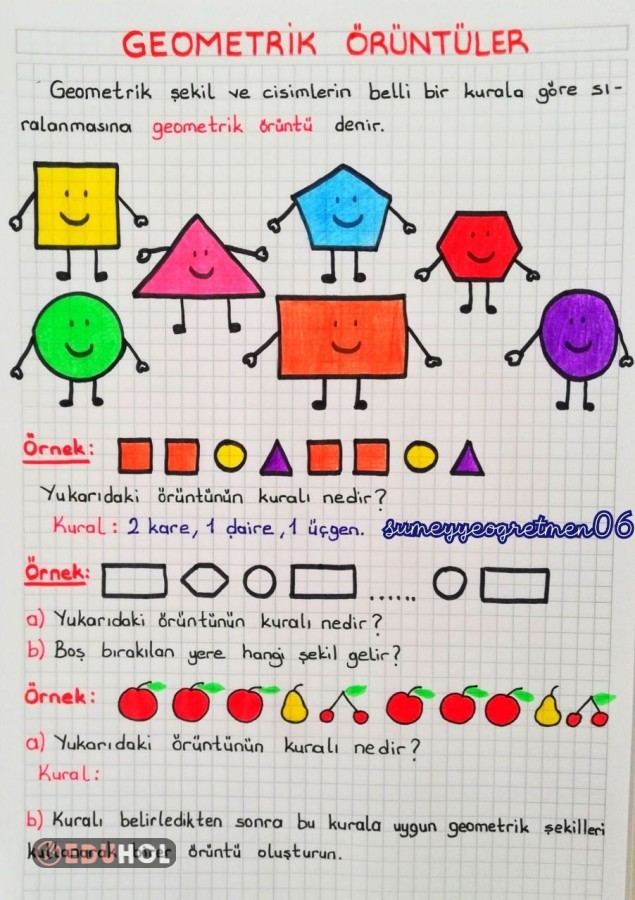 GEOMETRİK ÖRÜNTÜLER
Geometrik şekil ve cisimlerin belli bir kurala göre sı-
ralanmasına geometrik örüntü denir.
Örnek:
Yukarıdaki örüntünün kuralı nedir?
Kural: 2 kare, 1 daire, 1 üçgen. sumeyyeogretmen06
Örnek: ......
a) Yukarıdaki örüntünün kuralı nedir?
b) Boş bırakılan yere hangi şekil gelir?
Örnek:
a) Yukarıdaki örüntünün kuralı nedir?
Kural:
b) Kuralı belirledikten sonra bu kurala uygun geometrik şekilleri
kullanarak birer örüntü oluşturun.
EDUHOL